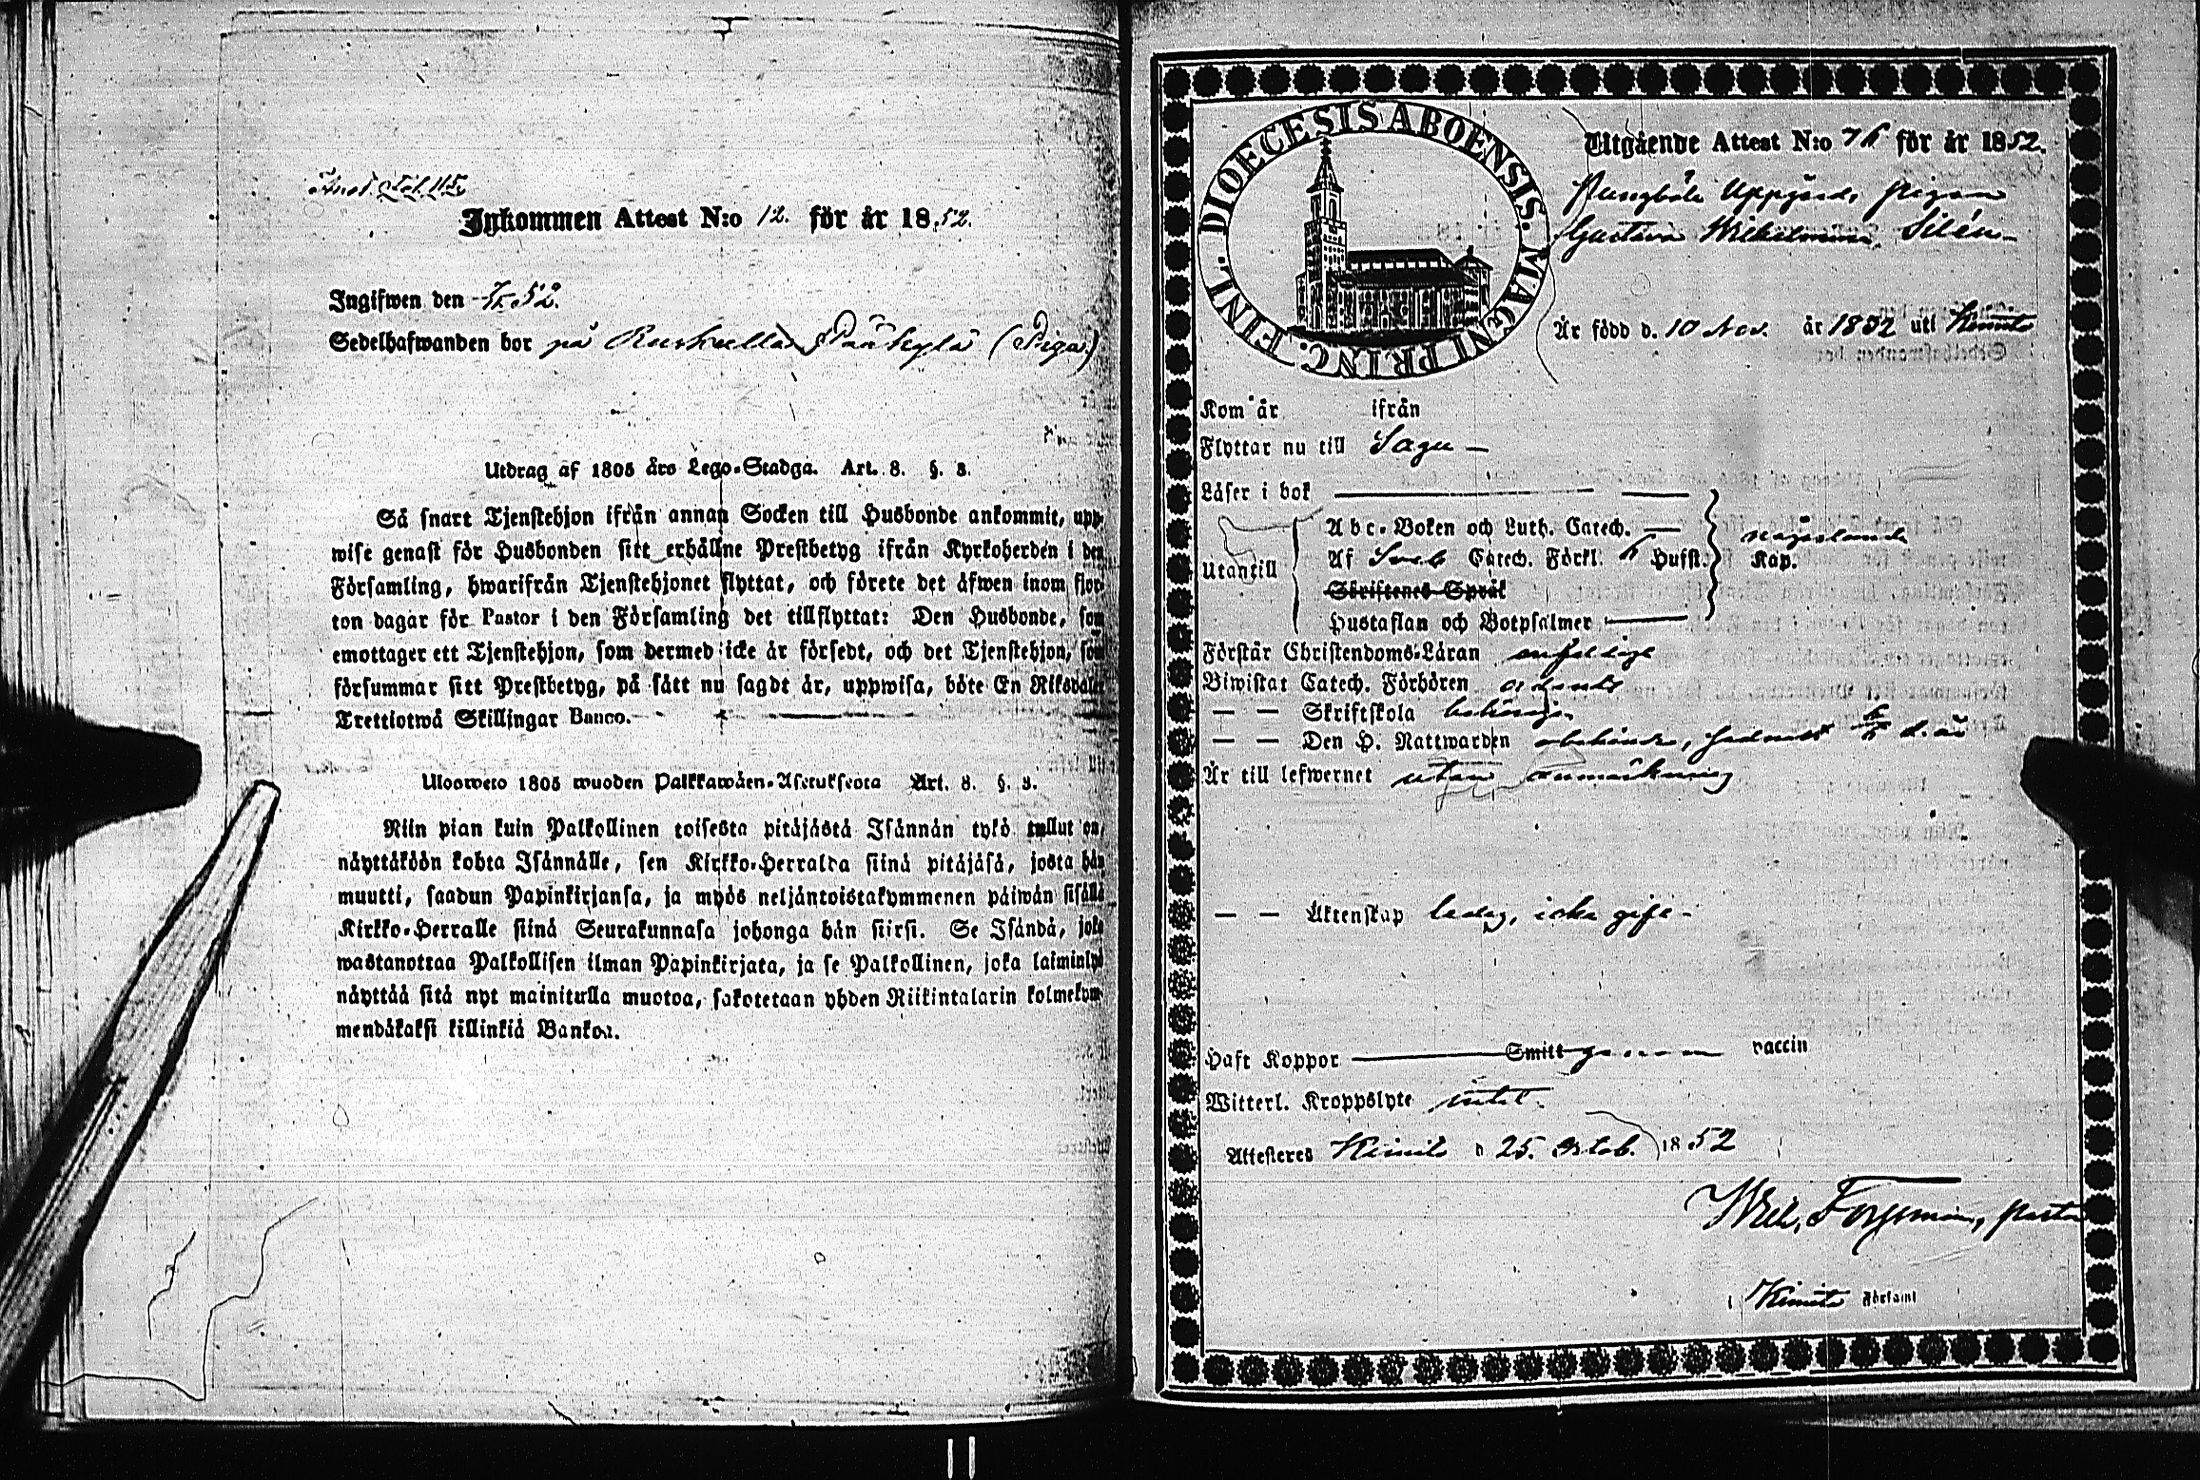 Inkommen Attest N:o 12. för år 1852.
Ingifwen den 52.
Sedelhafwanden bor på (Piga)
Utdrag af 1805 års Lego-Stadga. Art. 8. §. 3.
Så snart Tjenstehjon ifrån annan Socken till Husbonde ankommit, upp-
wise genast för Husbonden sitt erhållne Prestbetyg ifrån Kyrkoherden i den
Församling, hwarifrån Tjenstehjonet flyttat, och förete det äfwen inom fjor-
ton dagar för Pastor i den Församling det tillflyttat: Den Husbonde, som
emottager ett Tjenstehjon, som dermed icke är försedt, och det Tjenstehjon, som
försummar sitt Prestbetyg, på sätt nu sagdt är, uppwisa, böte En Riksdaler
Trettiotwå Skillingar Banco.
Ulosweto 1805 wuoden Palkkawäen-Asetuksesta Art. 8. §. 3.
Niin pian kuin Palkollinen toisesta pitäjästä Isännän tykö tullut on,
näyttäköön kohta Isännälle, sen Kirkko-Herralda siinä pitäjäsä, josta hän
muutti, saadun Papinkirjansa, ja myös neljäntoistakymmenen päiwän sisällä
Kirkko-Herralle siinä Seurakunnasa johonga hän siirsi. Se Isändä, joka
wastanottaa Palkollisen ilman Papinkirjata, ja se Palkollinen, joka laiminlyö
näyttää sitä nyt mainitulla muotoa, sakotetaan yhden Riikintalarin kolmekym-
mendäkaksi killinkiä Bankoa.
DIOECESIS ABOENSIS. MAGNI PRINC. FINL.
Utgående Attest N:o 76 för år 1852.
Uppgård, pigan
Gustava Wilhelmina Silén
Är född d. 10 Nov. år 1832 uti Kimito
Kom år ifrån
Flyttar nu till Sagu
Läser i bok
Abc-Boken och Luth. Catech.
Utantill Af Sveb Catech. Förkl. Hufst. Kap. någorlunda
Skriftenes Språk
Hustaflan och Botpsalmer
Förstår Christendoms-Läran enfaldigt
Biwistat Catech. Förhören
— — Skriftskola behörigen
— — Den H. Nattwarden d. å
Är till lefwernet utan anmärkning
— — Äktenskap ledig, icke gift
Haft Koppor Smitt genom vaccin
Witterl. Kroppslyte intet.
Attesteres Kimito d 25. Octob. 1852
Wilh. Forssman, pastor
i Kimito Församl